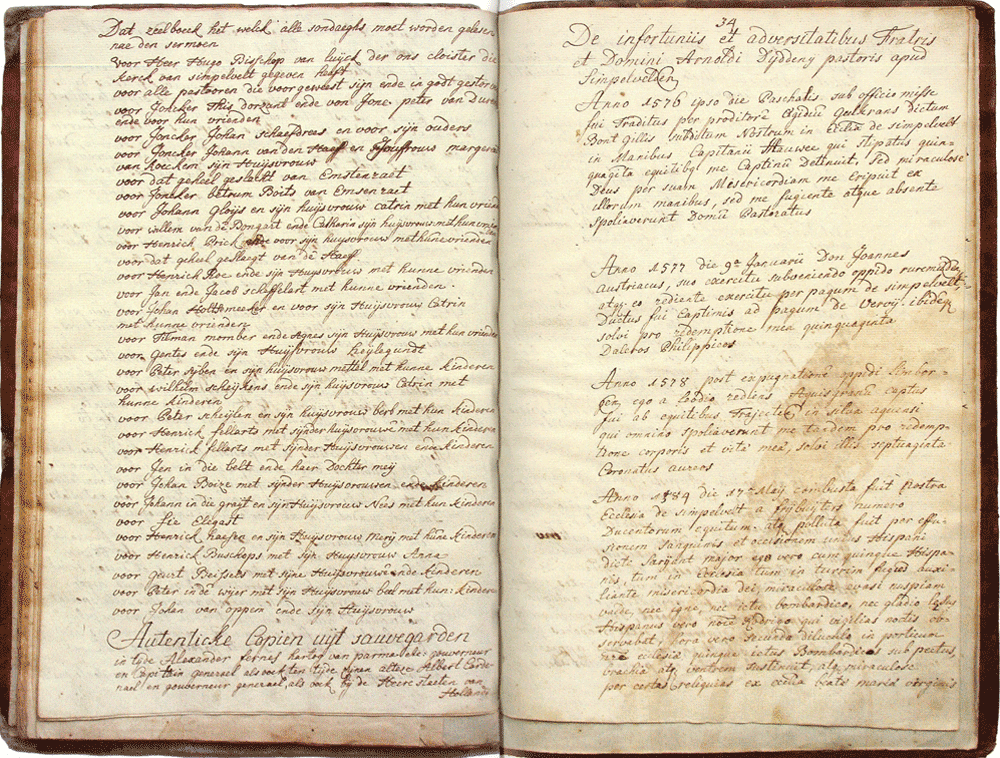 Dat zeelboeck het welck alle sondaeghs moet worden gelesen
nae den sermoen
voor Heer Hugo Bisschop van luijck der ons cloister die
kerck van simpelvelt gegeven heeft
voor alle pastooren die voorgeweest sijn ende in godt gestorven
voor Joncker This dorzant ende von Jonc. peter van
ende voor hun vrienden
voor Joncker Johan schaesdrees en voor sijn ouders
voor Joncker Johann van den Haeff en Jouffrouw margera
van Hoeckem sijn Huijsvrouw
voor dat geheel geslecht van Ernstenraedt
voor Joncker betrum Boits van Ernsenraet
voor Johann Gloijs en sijn huijsvrouw catrin met hun vrienden
voor willem van de Bongart ende Catharin sijn huijsvrouw met hun vrienden
voor Henrick Prick ende voor sijn huysvrouw met hune vrienden
voor dat geheel geslegt van de Haeff
voor Henrick Roe ende sijn Huysvrouw met hunne vrienden
voor Jan ende Jacob schaffelart met hunne vrienden.
voor Johan Holtsmecker en voor sijn Huijsvrouw Catrin
met hunne vrienden
voor Tilman momber ende Agnes sijn Huijsvrouw met hun vrienden
voor Gentes ende sijn Huijsvrouw Heijlegundt
voor Peter sijben en sijn huijsvrouw mettel met hunne kinderen
voor wilhelm scheijkens ende sijn huijsvrouw Catrin met
hunne kinderen
voor Peter scheijlen en sijn huijsvrouw berb met hun kinderen
voor Henrick fellarts met sijnder huijsvrouwe met hun kinderen
voor Henrick fellarts met sijnder Huijsvrouwen ende kinderen
voor Jen in die belt ende haer Dochter meij
voor Johan Boize met sijnder Huijsvrouwen ende kinderen
voor Johann in die graijt en sijn Huijsvrouw Nees met hun kinderen
voor fie Elegast
voor Henrick haesen en sijn Huijsvrouw Merij met hune kinderen
voor Henrick Buschops met sijn Huijsvrouw Anna
voor geurt Beissels met sijne Huijsvrouwe ende kinderen
voor Peter in de wijer met sijn Huijsvrouw beel met hun kinderen
voor Johan van oppen ende sijn Huijsvrouw
Autenticke Copien uijt sauvegarden
in tijde Alexander fernes hartog van parma etc gouverneur
en Capitain generael als oock ten tijde sijnen altese Albert Carde-
nael en gouverneur generael, als oock bij de Heere staeten van
Hollandt
34
De infortuniis et adversitatibus Fratris
et Domini Arnoldi Dijdeny pastoris apud
Simpelvelden
Anno 1576 ipso die Paschalis sub officio misse
fui Traditus per proditore Egidiu Quikrans Dictum
Pont Gillis subditum Nostrum in Eccla de simpelvelt
in Manibus Capitanii Hausee qui stipatus quin-
quagita equitibq me Captivu Detinuit, sed miraculose
Deus per suam Mesericordiam me Eripuit ex
illorum manibus, sed me fugiente atque absente
spoliaverunt Domu Pastoratus
Anno 1577 die 9a Januarii Don Joannes
austriacus, suo exercitu subveniendo oppido ruremunden
atqz eo rediente exercitu per pagum de simpelvelt
Ductus fui Captivus ad pagum de Vervy. ibidem
solvi pro redemptione mea quinquaginta
Daleros Philippicos
Anno 1578 post expugnatione oppidi Limbor-
gen, ego a Leodio rediens Aquisgranu captus
fui ab equitibus Trajecti in silva aquensi
qui omnino spoliaverunt me tandem pro redemp-
tione corporis et vite mea, solvi illis septuaginta
Coronatus aureos
Anno 1584 die 17a Maij combusta fuit Nostra
Ecclesia de simpelvelt a frijbuijters numero
Ducentorum equitum atqz polluta fuit per effu-
sionem Sanguinis et occisionem unius Hispani
Dicte sarjant major ego vero cum quinque Hispa-
nis, tum in ecclesia tum in turrim fugiens auxi-
liante misericordia dei miraculose evasi nuspiam
valde, nec igne, nec ictu bombardico, nec gladio lesus
Hispanus vero noie Rodrigo qui vigilias noctis ob-
servebat, hora vero secunda diluculo in porticum
ecclesia quinque ictus Bombardicos sub pectus,
brachia atqz ventrem sustenuit, atqz miraculose
per certas reliquias ex eccla beate maria virginis